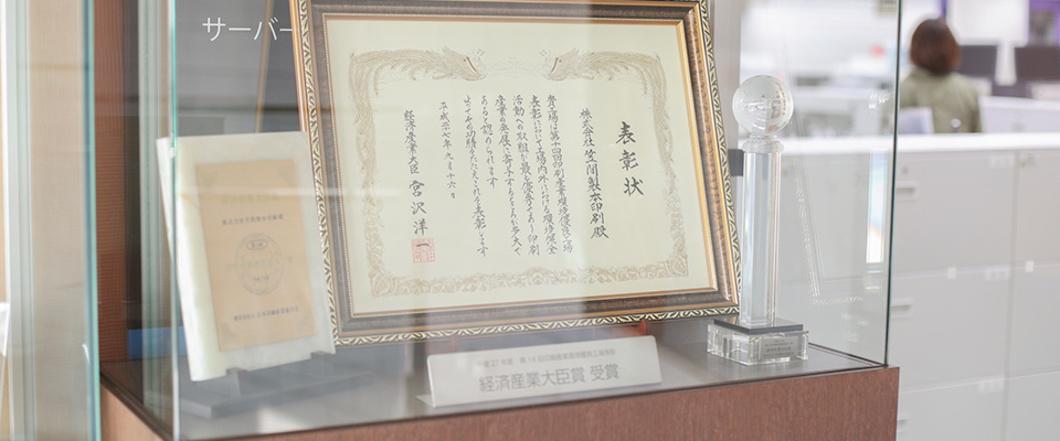 サーバー
表彰状
株式会社笠間製本印刷殿
貴工場は第十四回印刷産業環境優良工場
表彰において工場内外における環境保全
活動への取組が最も優秀であり印刷
産業の発展に寄与するところが多大で
あると認められます
よってその功績をたたえこれを表彰します
平成二十七年九月十六日
経済産業大臣 宮沢洋一
平成27年度 第14回印刷産業環境優良工場表彰
経済産業大臣賞 受賞